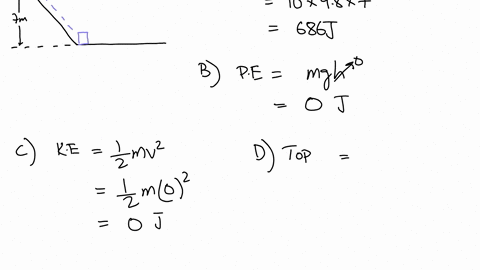 = 10 x 9.8 x 7
7m
= 686J
B) P.E = mgh→0
= 0 J
C) K.E = 1/2 mv²
= 1/2 m(0)²
= 0 J
D) TOP =